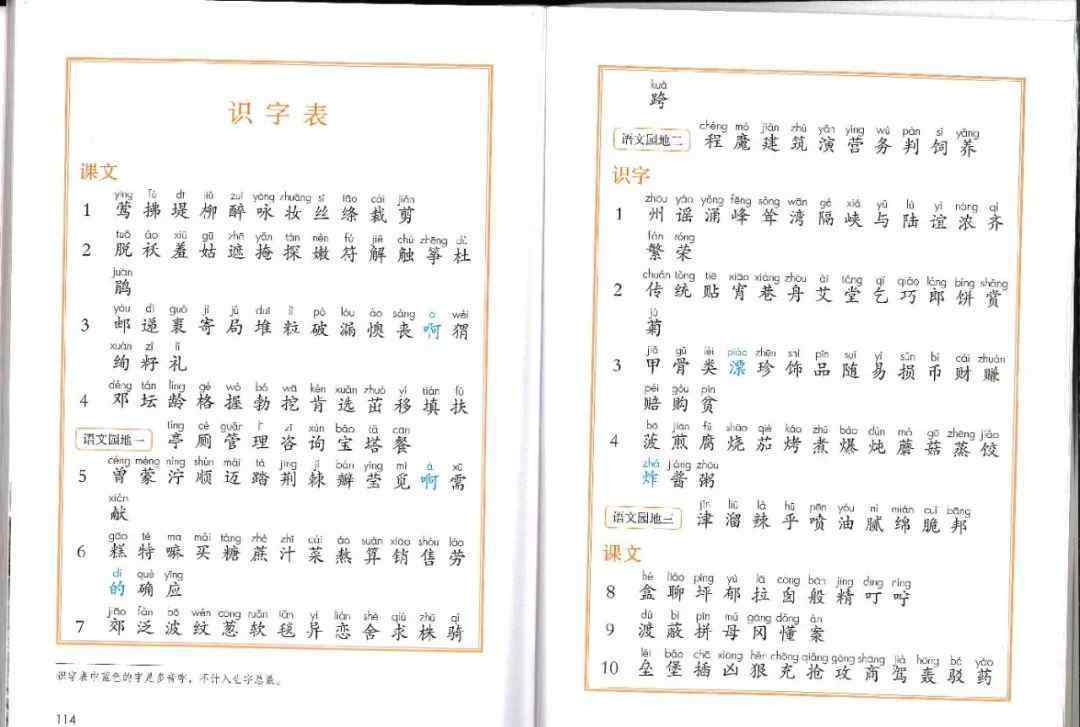 识字表
课文
yīng fú dī liǔ zuì yǒng zhuāng sī tāo cái jiǎn
1 莺 拂 堤 柳 醉 咏 妆 丝 绦 裁 剪
tuō ǎo xiū gū zhē yǎn tàn nèn fú jiě chù zhēng dù
2 脱 袄 羞 姑 遮 掩 探 嫩 符 解 触 筝 杜
juān
鹃
yóu dì guǒ jì jú duī lì pò lòu ào sàng a wèi
3 邮 递 裹 寄 局 堆 粒 破 漏 懊 丧 啊 猬
xuàn zǐ lǐ
绚 籽 礼
dèng tán líng gé wò bó wā kěn xuǎn zhuó yí tián fú
4 邓 坛 龄 格 握 勃 挖 肯 选 茁 移 填 扶
语文园地一
tíng cè guǎn lǐ zī xún bǎo tǎ cān
亭 厕 管 理 咨 询 宝 塔 餐
céng méng nìng shùn mài tà jīng jí bàn yíng mì á xū
5 曾 蒙 泞 顺 迈 踏 荆 棘 瓣 莹 觅 啊 需
xiàn
献
gāo tè ma mǎi táng zhè zhī cài áo suàn xiāo shòu láo
6 糕 特 嘛 买 糖 蔗 汁 菜 熬 算 销 售 劳
dí què yīng
的 确 应
jiāo fàn bō wén cōng ruǎn tǎn yì liàn shě qiú zhū qí
7 郊 泛 波 纹 葱 软 毯 异 恋 舍 求 株 骑
识字表中蓝色的字是多音字，不计入生字总数。
114
kuà
跨
语文园地二
chéng mó jiàn zhù yǎn yíng wù pàn sì yǎng
程 魔 建 筑 演 营 务 判 饲 养
识字
zhōu yáo yǒng fēng sǒng wān gé xiá yǔ lù yì nóng qí
1 州 谣 涌 峰 耸 湾 隔 峡 与 陆 谊 浓 齐
fán róng
繁 荣
chuán tǒng tiē xiāo xiàng zhōu ài táng qǐ qiǎo láng bǐng shǎng
2 传 统 贴 宵 巷 舟 艾 堂 乞 巧 郎 饼 赏
jú
菊
jiǎ gǔ lèi piào zhēn shì pǐn suí yì sǔn bì cái zhuàn
3 甲 骨 类 漂 珍 饰 品 随 易 损 币 财 赚
péi gòu pín
赔 购 贫
bō jiān fǔ shāo qié kǎo zhǔ bào dùn mó gū zhēng jiǎo
4 菠 煎 腐 烧 茄 烤 煮 爆 炖 蘑 菇 蒸 饺
zhá jiàng zhōu
炸 酱 粥
语文园地三
jīn liū là hū pēn yóu nì mián cuì bāng
津 溜 辣 乎 喷 油 腻 绵 脆 邦
课文
hé liáo píng yù lā cōng bān jīng dīng níng
8 盒 聊 坪 郁 拉 囱 般 精 叮 咛
dù bì pīn mǔ gāng dǒng àn
9 渡 蔽 拼 母 冈 懂 案
lěi bǎo chā xiōng hěn chōng qiǎng gōng shāng jià hōng bó yào
10 垒 堡 插 凶 狠 充 抢 攻 商 驾 轰 驳 药